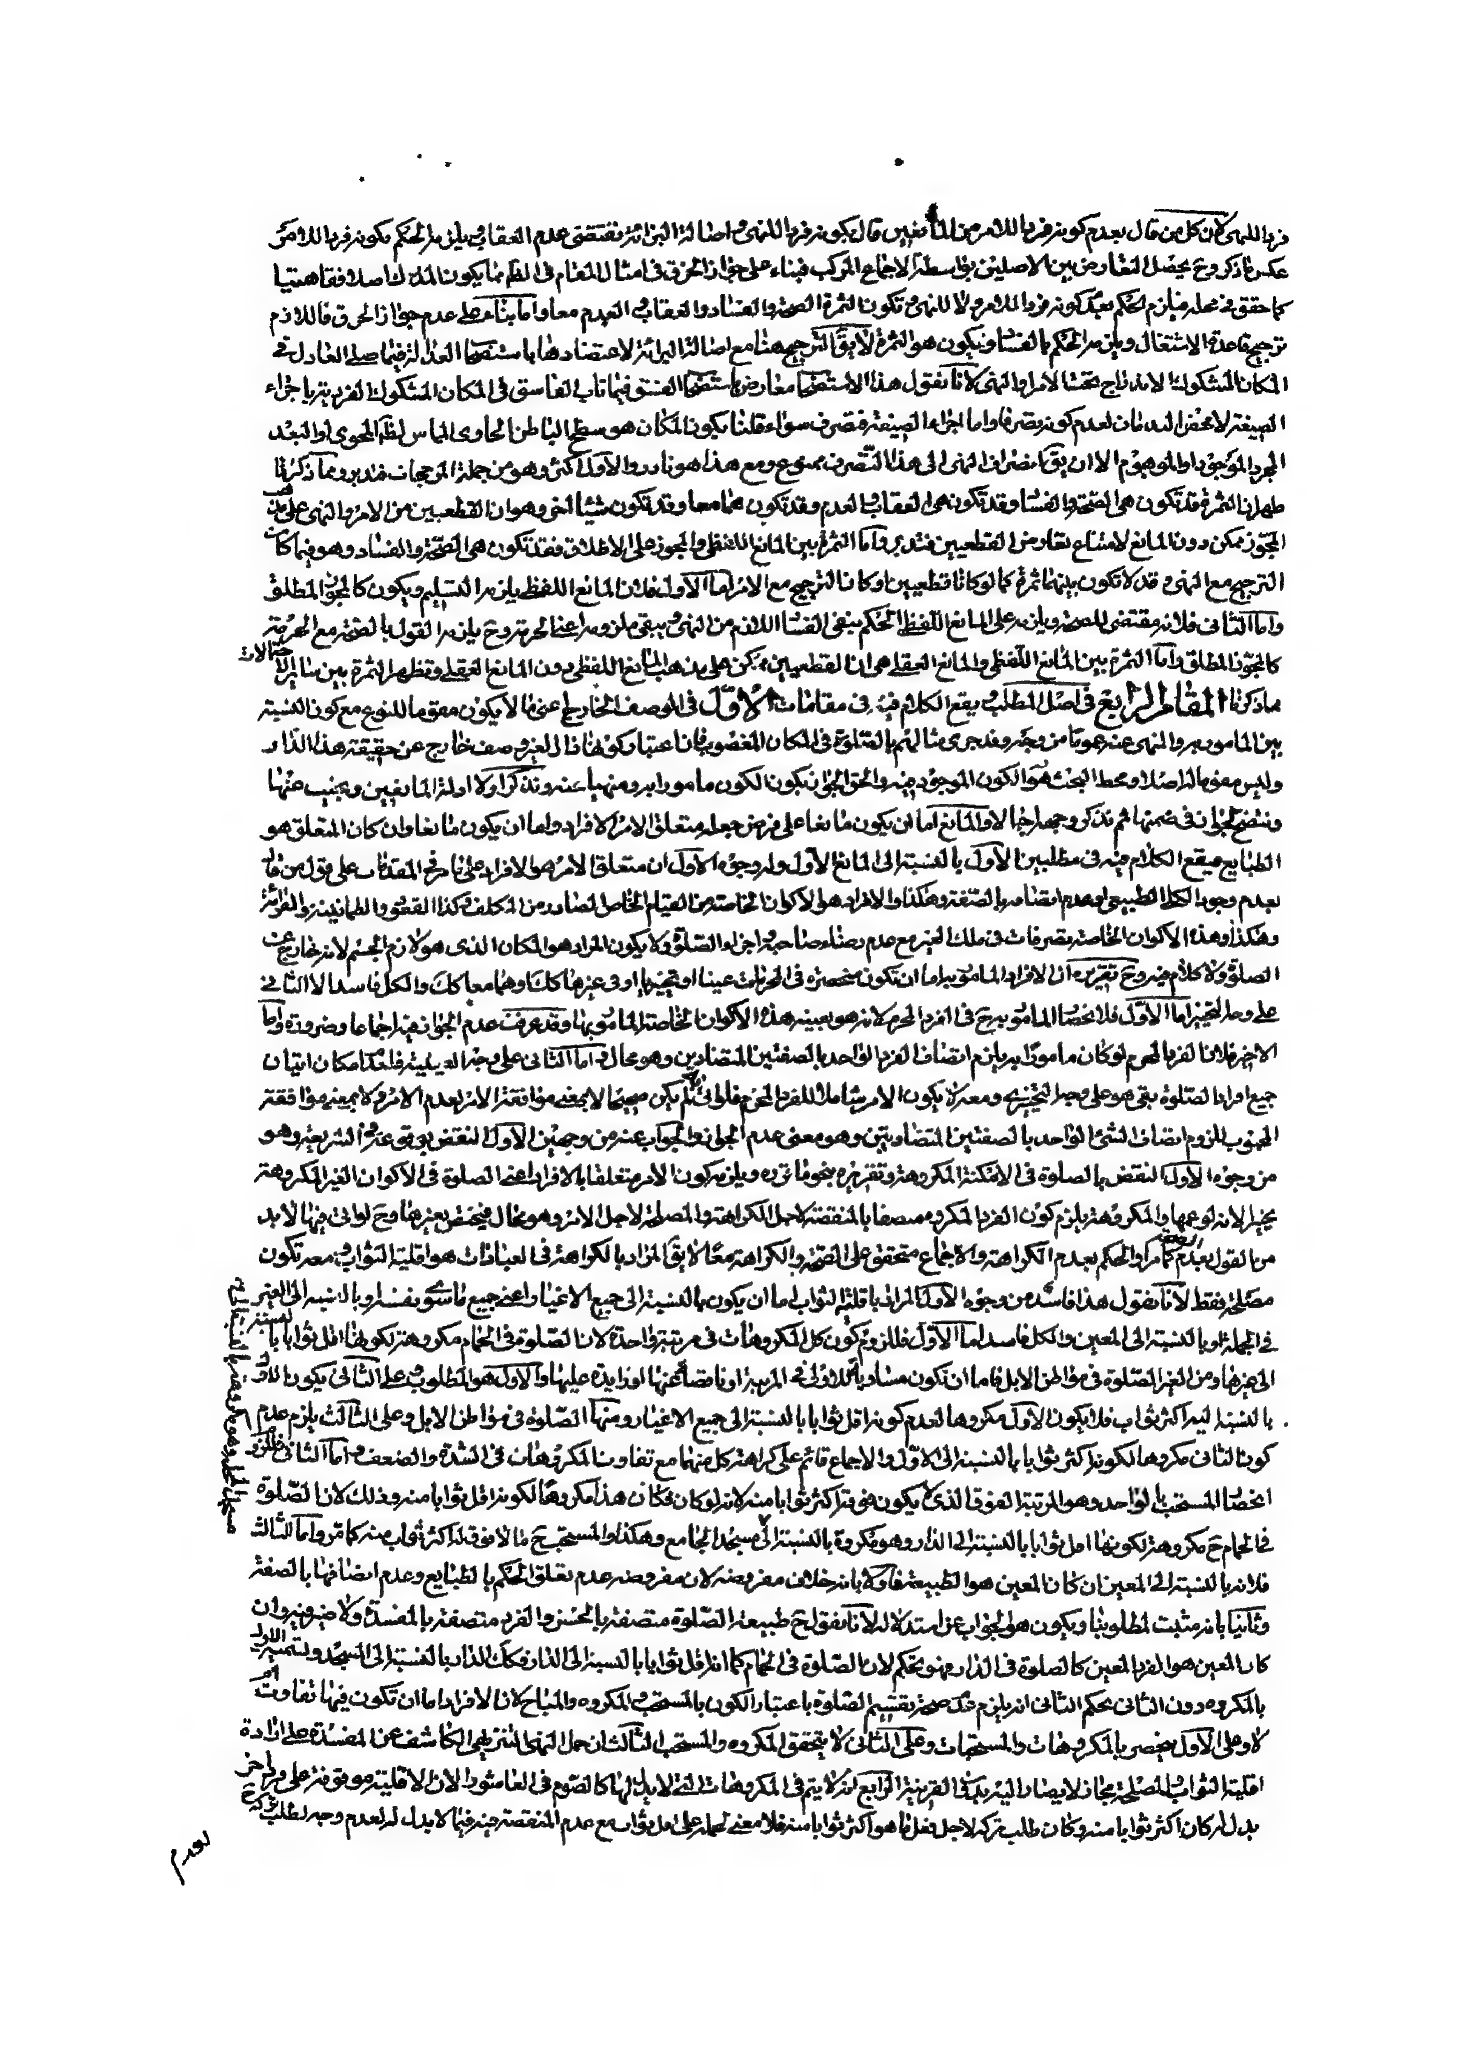 فردا للنهى لان كل من قال بعدم كونه فردا للامر من المانعين قال بكونه فردا للنهى واصالة البرائة تقتضى عدم العقاب ويلزمه الحكم بكونه فردا للامر
عكس ما ذكر وح يحصل التعارض بين الاصلين بواسطة الاجماع المركب فبناء على جواز الخرق فى امثال المقام فى الظم مما يكون المدرك اصلا فقاهتيا
كما حقق فى محله فيلزم الحكم بعدم كونه فردا للامر ولا للنهى وتكون الثمرة الصحة والفساد والعقاب والعدم معا واما بناء على عدم جواز الخرق فاللازم
ترجيح قاعدة الاشتغال ويلزمه الحكم بالفساد ويكون هو الثمرة لا يق الترجيح هنا مع اصالة البرائة لاعتضادها باستصحا العدالة فيما صلى العادل فى
المكان المشكوك الاندراج تحت الامر او النهى لانا نقول هذا الاستصحا معارض باستصحا الفسق فيما تاب الفاسق فى المكان المشكوك الفردية باجراء
الصيغة لا بمحض الندمان لعدم كونه تصرفا واما اجراء الصيغة فتصرف سواء قلنا بكون المكان هو سطح الباطن الحاوى المماس لظم المحوى او البعد
المجرد الموجود او الموهوم الا ان يق بانصراف النهى الى هذا التصرف ممنوع ومع هذا هو نادر والاول اكثر وهو من جملة المرجحات فتدبر ومما ذكرنا
ظهر ان الثمرة قد تكون هى الصحة والفساد وقد تكون هى العقاب والعدم وقد تكون هما معا وقد تكون شيئا اخر وهو ان القطعيين من الامر والنهى على مذهب
المجوز ممكن دون المانع لامتناع تعارض القطعيين فتدبر واما الثمرة بين المانع اللفظى والمجوز على الاطلاق فقد تكون هى الصحة والفساد وهو فيما كان
الترجيح مع النهى وقد لا تكون بينهما ثمرة كما لو كانا قطعيين او كان الترجيح مع الامر اما الاول فلان المانع اللفظى يلزمه التسليم ويكون كالمجوز المطلق
واما الثانى فلانه مقتضى للصحة ويلزمه على المانع اللفظى الحكم بنفى الفساد اللازم من النهى ويبقى ملزومه اعنى الحرمة وح يلزمه القول بالصحة مع الحرمة
كالمجوز المطلق واما الثمرة بين المانع اللفظى والمانع العقلى هى ان القطعيين ممكن على مذهب المانع اللفظى دون المانع العقلى وتظهر الثمرة بين ساير الاحتمالات
مما ذكرنا المقام الرابع فى اصل المطلب ويقع الكلام فيه فى مقامات الاول فى الوصف الخارجى اعنى ما لا يكون مقوما للنوع مع كون النسبة
بين المامور به والنهى عنه عموما من وجه وقد جرى مثالهم بالصلوة فى المكان المغصوب فان اعتبار كونها فى دار الغير وصف خارج عن حقيقة هذا الدار
وليس مقوما له اصلا ومحط البحث هو الكون الموجود فيه والحق الجواز بكون الكون مامورا به ومنهيا عنه ونذكر اولا ادلة المانعين ونجيب عنها
ونتضح الجواز فى ضمنها ثم نذكر وجهها اجمالا والمانع اما ان يكون مانعا على فرض جعله متعلق الامر الافراد واما ان يكون مانعا وان كان المتعلق هو
الطبايع فيقع الكلام فيه فى مطلبين الاول بالنسبة الى المانع الاول وله وجوه الاول ان متعلق الامر هو الافراد على ما مر فى المقدمات على قول من قال
بعدم وجود الكلى الطبيعى او عدم اتصافه بالصفة وهكذا والافراد هى الاكوان الخاصة من القيام الخاص الصادر من المكلف وكذا القعود والطمانينة والقرائة
وهكذا وهذا الاكوان الخاصة تصرفات فى ملك الغير مع عدم رضاء صاحبه واجزاء الصلوة ولا يكون المراد هو المكان الذى هو لازم الجسم لانه خارج عن
الصلوة ولا كلام فيه وح تقريره ان الافراد المامور بها اما ان تكون منحصرة فى المحرمات عينا او تخييرا او فى غيرها كك او هما معا كك والكل فاسد الا الثانى
على وجه التخيير اما الاول فلانحصار المامور به ح فى الفرد المحرم لانه هو بعينه هذه الاكوان الخاصة المامور بها وقد عرفت عدم الجواز فيه اجماعا وضرورة واما
الاخير فلان الفرد المحرم لو كان مامورا به يلزم اتصاف الفرد الواحد بالصفتين المتضادين وهو محال واما الثانى على وجه العينية فلعدم امكان اتيان
جميع افراد الصلوة بقى هو على وجه التخيير ومعه لا يكون الامر شاملا للفرد المحرم فلو اتى به لم يكن صحيحا لا بمعنى موافقة الامر لعدم الامر ولا بمعنى موافقة
المحبوب للزوم اتصاف الشئ الواحد بالصفتين المتضادين وهو معنى عدم الجواز والجواب عنه من وجهين الاول النقض بوقوعه فى الشريعة وهو
من وجوه الاول النقض بالصلوة فى الامكنة المكروهة وتقريره بنحو ما قرره ويلزمه كون الامر متعلقا بالافراد اعنى الصلوة فى الاكوان الغير المكروهة
تخييرا لانه لو عمها والمكروهة يلزم كون الفرد المكروه متصفا بالمنقصة لاجل الكراهة والمصلحة لاجل الامر وهو محال فيختص بغيرها وح لو اتى فيها لا بد
من القول بعدم الصحة كما مر او الحكم بعدم الكراهة والاجماع متحقق على الصحة والكراهة معا لا يق المراد بالكراهة فى العبادات هو اقلية الثواب ومعه تكون
مصلحة فقط لانا نقول هذا فاسد من وجوه الاول المراد باقلية الثواب اما ان يكون بالنسبة الى جميع الاغيار اعنى جميع ما سوى نفسه او بالنسبة الى الغير
فى الجملة او بالنسبة الى المعين والكل فاسد اما الاول فللزوم كون كل المكروهات فى مرتبة واحدة لان الصلوة فى الحمام مكروهة لكونها اقل ثوابا بالنسبة
الى غيرها ومن الغير الصلوة فى مواطن الابل فاما ان تكون مساوية للاولى فى المرتبة او ناقصة عنها او زايدة عليها والاول هو المطلوب وعلى الثانى يكون الاول
بالنسبة اليه اكثر ثواب فلا يكون الاول مكروها لعدم كونه اقل ثوابا بالنسبة الى جميع الاغيار ومنها الصلوة فى مواطن الابل وعلى الثالث يلزم عدم
كون الثانى مكروها لكونه اكثر ثوابا بالنسبة الى الاول والاجماع قائم على كراهة كل منهما مع تفاوت المكروهات فى الشدة والضعف واما الثانى فللزوم
انحصار المستحب بالواحد وهو المرتبة الفوق الذى لا يكون فوقه اكثر ثوابا منه لانه لو كان فكان هذا مكروها لكونه اقل ثوابا منه وذلك لان الصلوة
فى الحمام ح مكروهة لكونها اقل ثوابا بالنسبة الى الدار وهو مكروه بالنسبة الى مسجد الجامع وهكذا والمستحب ح ما لا فوق له اكثر ثواب منه كما مر واما الثالث
فلانه بالنسبة الى المعين ان كان المعين هو الطبيعة فاولا بانه خلاف مفروضه لان مفروضه عدم تعلق الحكم بالطبايع وعدم اتصافها بالصفة
وثانيا بانه مثبت لمطلوبنا ويكون هو الجواب عن استدلاله لانا نقول ح طبيعة الصلوة متصفة بالحسن والفرد متصفة بالمفسدة ولا ضير فيه وان
كان المعين هو الفرد المعين كالصلوة فى الدار فهو تحكم لان الصلوة فى الحمام كما انه اقل ثوابا بالنسبة الى الدار فكك الدار بالنسبة الى المسجد وتسمية الاول
بالمكروه دون الثانى تحكم الثانى انه يلزم عدم صحة تقسيم الصلوة باعتبار الكون بالمستحب والمكروه والمباح لان الافراد اما ان تكون فيها تفاوت ام
لا وعلى الاول ينحصر بالمكروهات والمستحبات وعلى الثانى لا يتحقق المكروه والمستحب الثالث ان حمل النهى التنزيهى الكاشف عن المفسدة على ارادة
اقلية الثواب والمصلحة مجاز لا يصار اليه بدون القرينة الرابع انه لا يتم فى المكروهات التى لا بدل لها كالصوم فى العاشورا لان الاقلية موقوفة على فرد اخر
بدل له كان اكثر ثوابا منه وكان طلب تركه لاجل فعل ما هو اكثر ثوابا منه فلا معنى لحمله على اقل ثواب مع عدم المنقصة فيه فيما لا بدل له لعدم وجه لطلب تركه